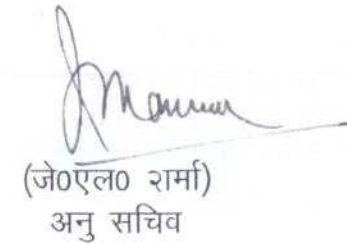 (जे0एल0 शर्मा)
अनु सचिव